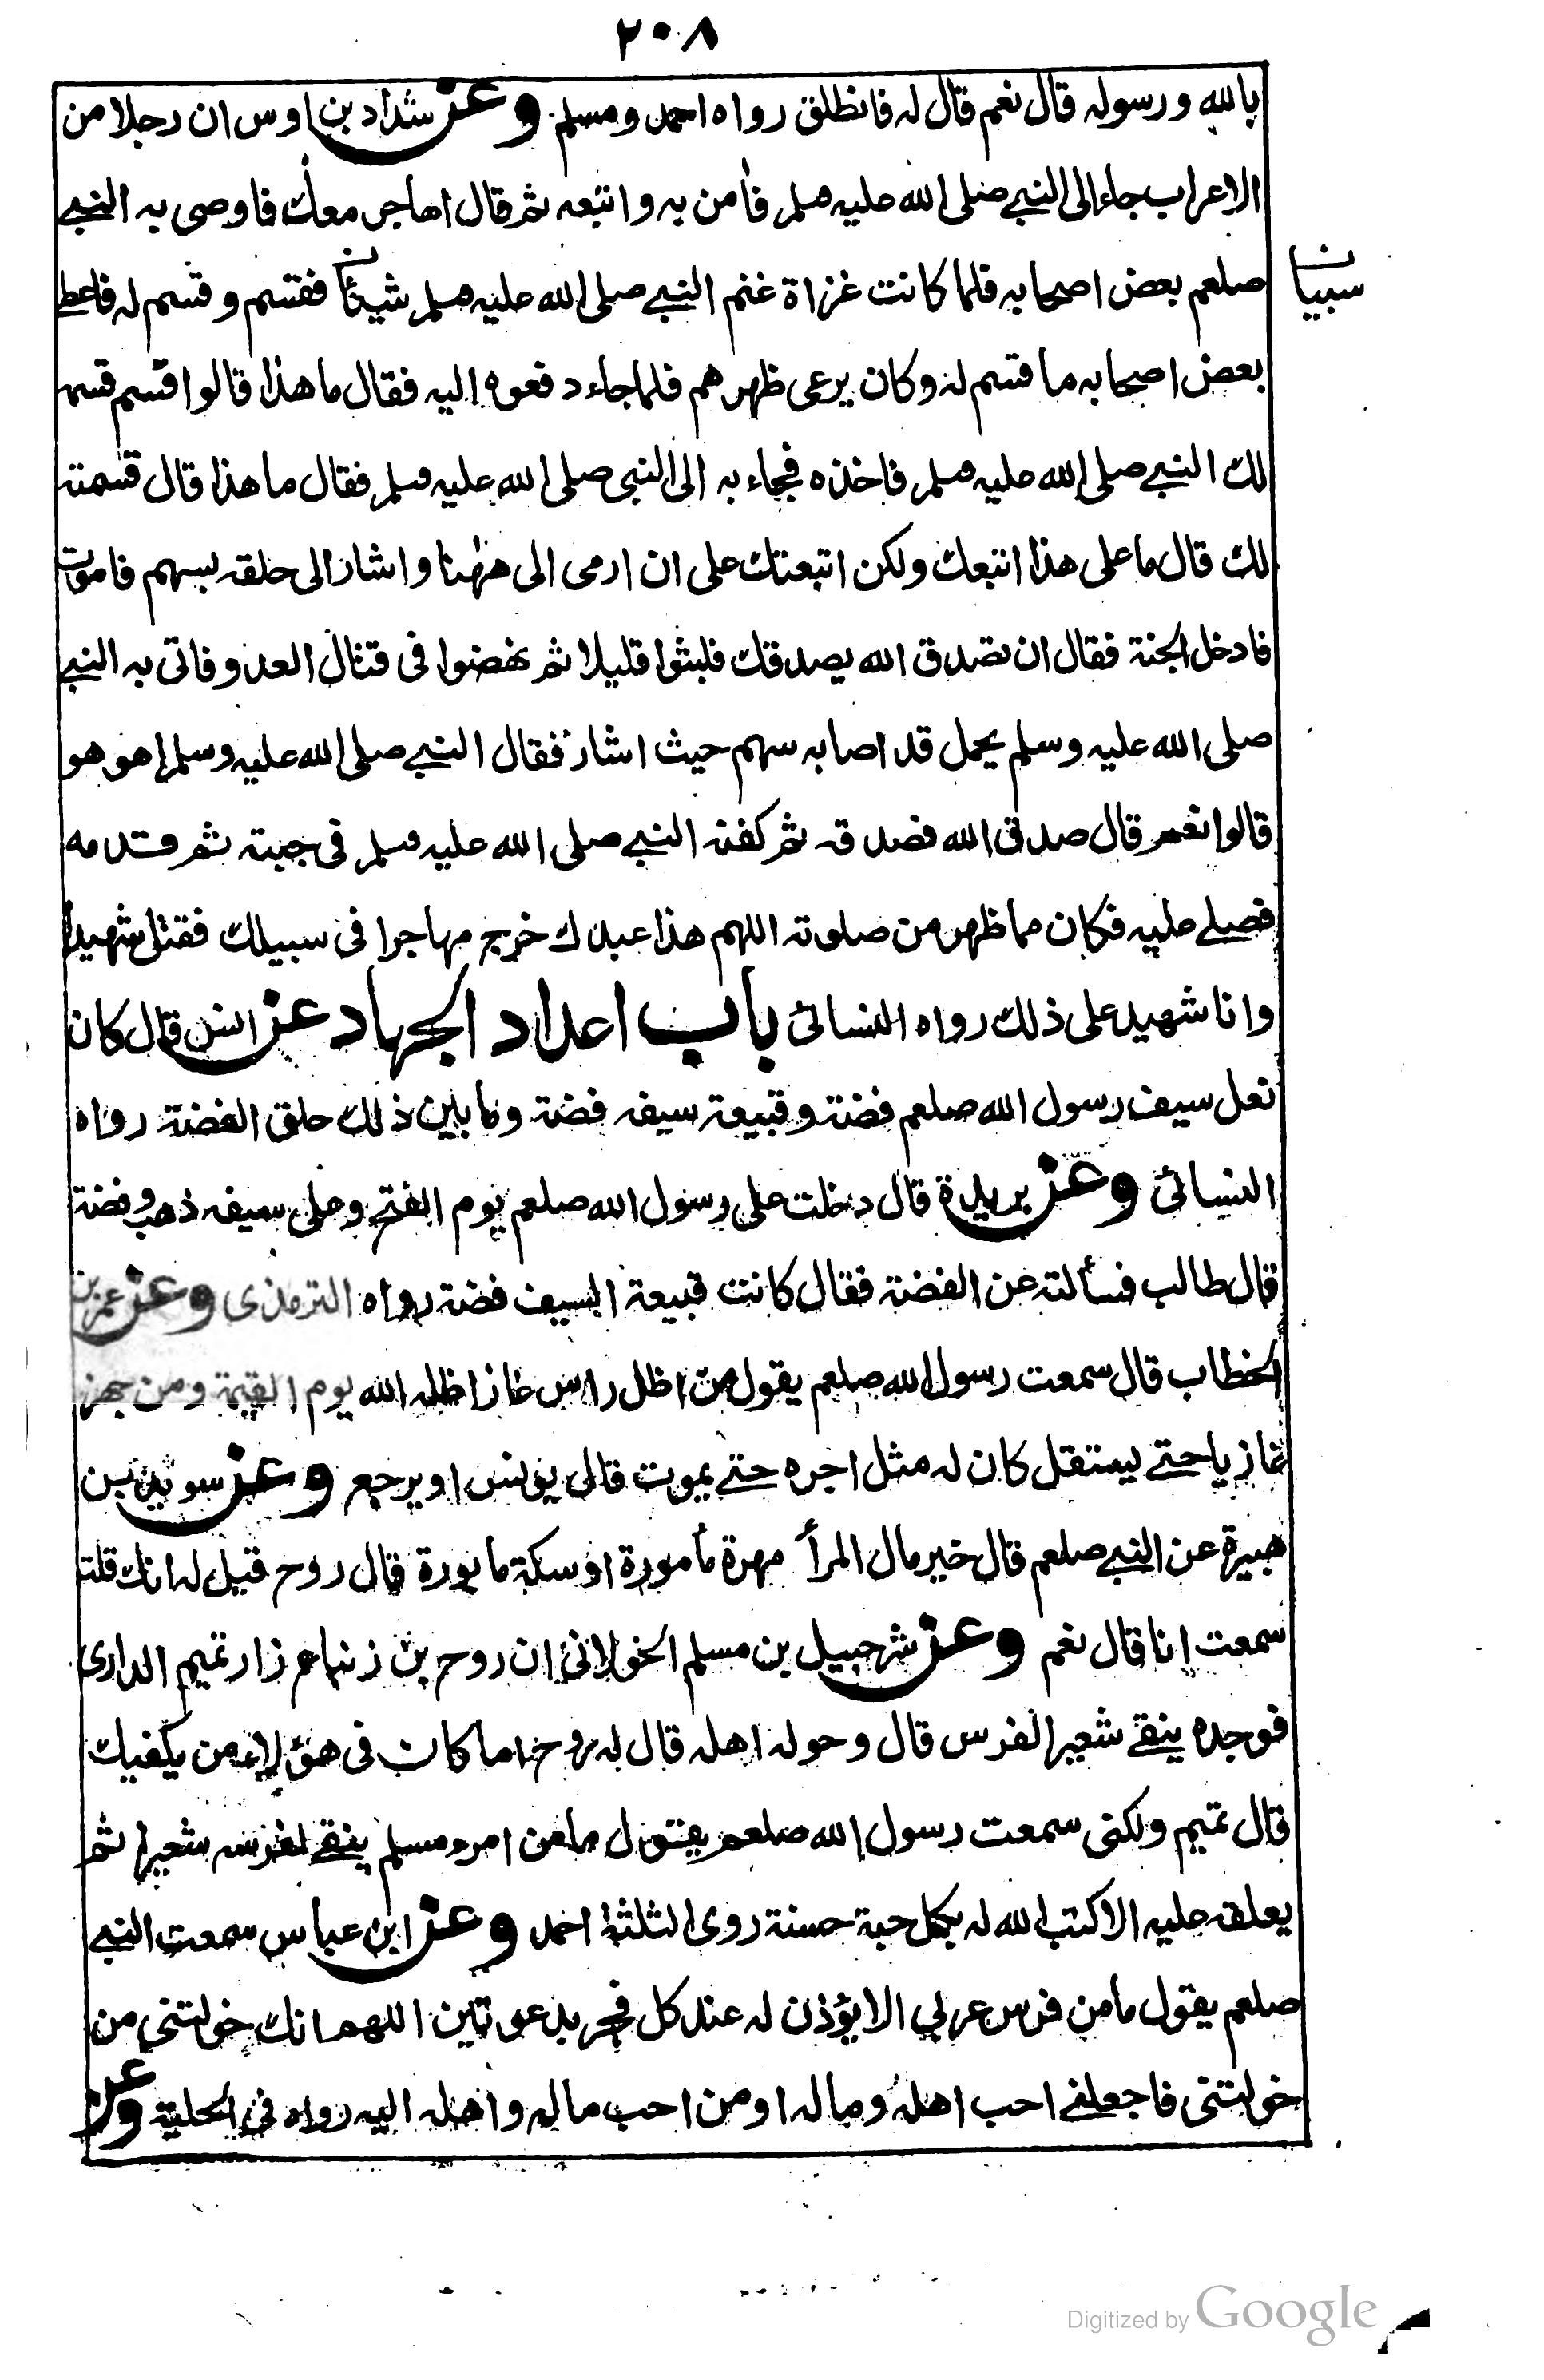 ٢٠٨
بالله ورسوله قال نعم قال له فانطلق رواه احمد ومسلم وعن شداد بن اوس ان رجلا من
الاعراب جاء الى النبي صلى الله عليه وسلم فأمن به واتبعه ثم قال اهاجر معك فاوصى به النبي
صلعم بعض اصحابه فلما كانت غزاة غنم النبي صلى الله عليه وسلم شيئا فقسم وقسم له فاعطى
سبيا
بعض اصحابه ما قسم له وكان يرعى ظهرهم فلما جاء دفعوه اليه فقال ما هذا قالوا قسم قسمه
لك النبي صلى الله عليه وسلم فاخذه فجاء به الى النبي صلى الله عليه وسلم فقال ما هذا قال قسمته
لك قال ما على هذا اتبعك ولكن اتبعتك على ان ارمى الى ههنا واشار الى حلقه بسهم فاموت
فادخل الجنة فقال ان تصدق الله يصدقك فلبثوا قليلا ثم نهضوا فى قتال العدو فاتى به النبي
صلى الله عليه وسلم يحمل قد اصابه سهم حيث اشار فقال النبي صلى الله عليه وسلم اهو هو
قالوا نعم قال صدق الله فصدقه ثم كفنه النبي صلى الله عليه وسلم فى جبته ثم قدمه
فصلى عليه فكان مما ظهر من صلوته اللهم هذا عبدك خرج مهاجرا فى سبيلك فقتل شهيدا
وانا شهيد على ذلك رواه النسائى باب اعداد الجهاد عن انس قال كان
نعل سيف رسول الله صلعم فضة وقبيعة سيفه فضة وما بين ذلك حلق الفضة رواه
النسائى وعن بريدة قال دخلت على رسول الله صلعم يوم الفتح وعلى سيفه ذهب وفضة
قال طالب فسألته عن الفضة فقال كانت قبيعة السيف فضة رواه الترمذى وعن عمر بن
الخطاب قال سمعت رسول الله صلعم يقول من اظل راس غاز اظله الله يوم القيمة ومن جهز
غازيا حتى يستقل كان له مثل اجره حتى يموت قال يونس او يرجع وعن سويد بن
هبيرة عن النبي صلعم قال خير مال المرأ مهرة مأمورة او سكة مابورة قال روح قيل له انك قلت
سمعت انا قال نعم وعن شرحبيل بن مسلم الخولانى ان روح بن زنباع زار تميم الدارى
فوجده ينقى شعير الفرس قال وحوله اهله قال له روح اما كان فى هؤلاء من يكفيك
قال تميم ولكنى سمعت رسول الله صلعم يقول ما من امرء مسلم ينقى لفرسه شعيرا ثم
يعلقه عليه الا كتب الله له بكل حبة حسنة روى الثلثة احمد وعن ابن عباس سمعت النبي
صلعم يقول ما من فرس عربي الا يؤذن له عند كل فجر بدعوتين اللهم انك خولتنى من
خولتنى فاجعلنى احب اهله وماله او من احب ماله واهله اليه رواه فى الحلية وعن
Digitized by Google